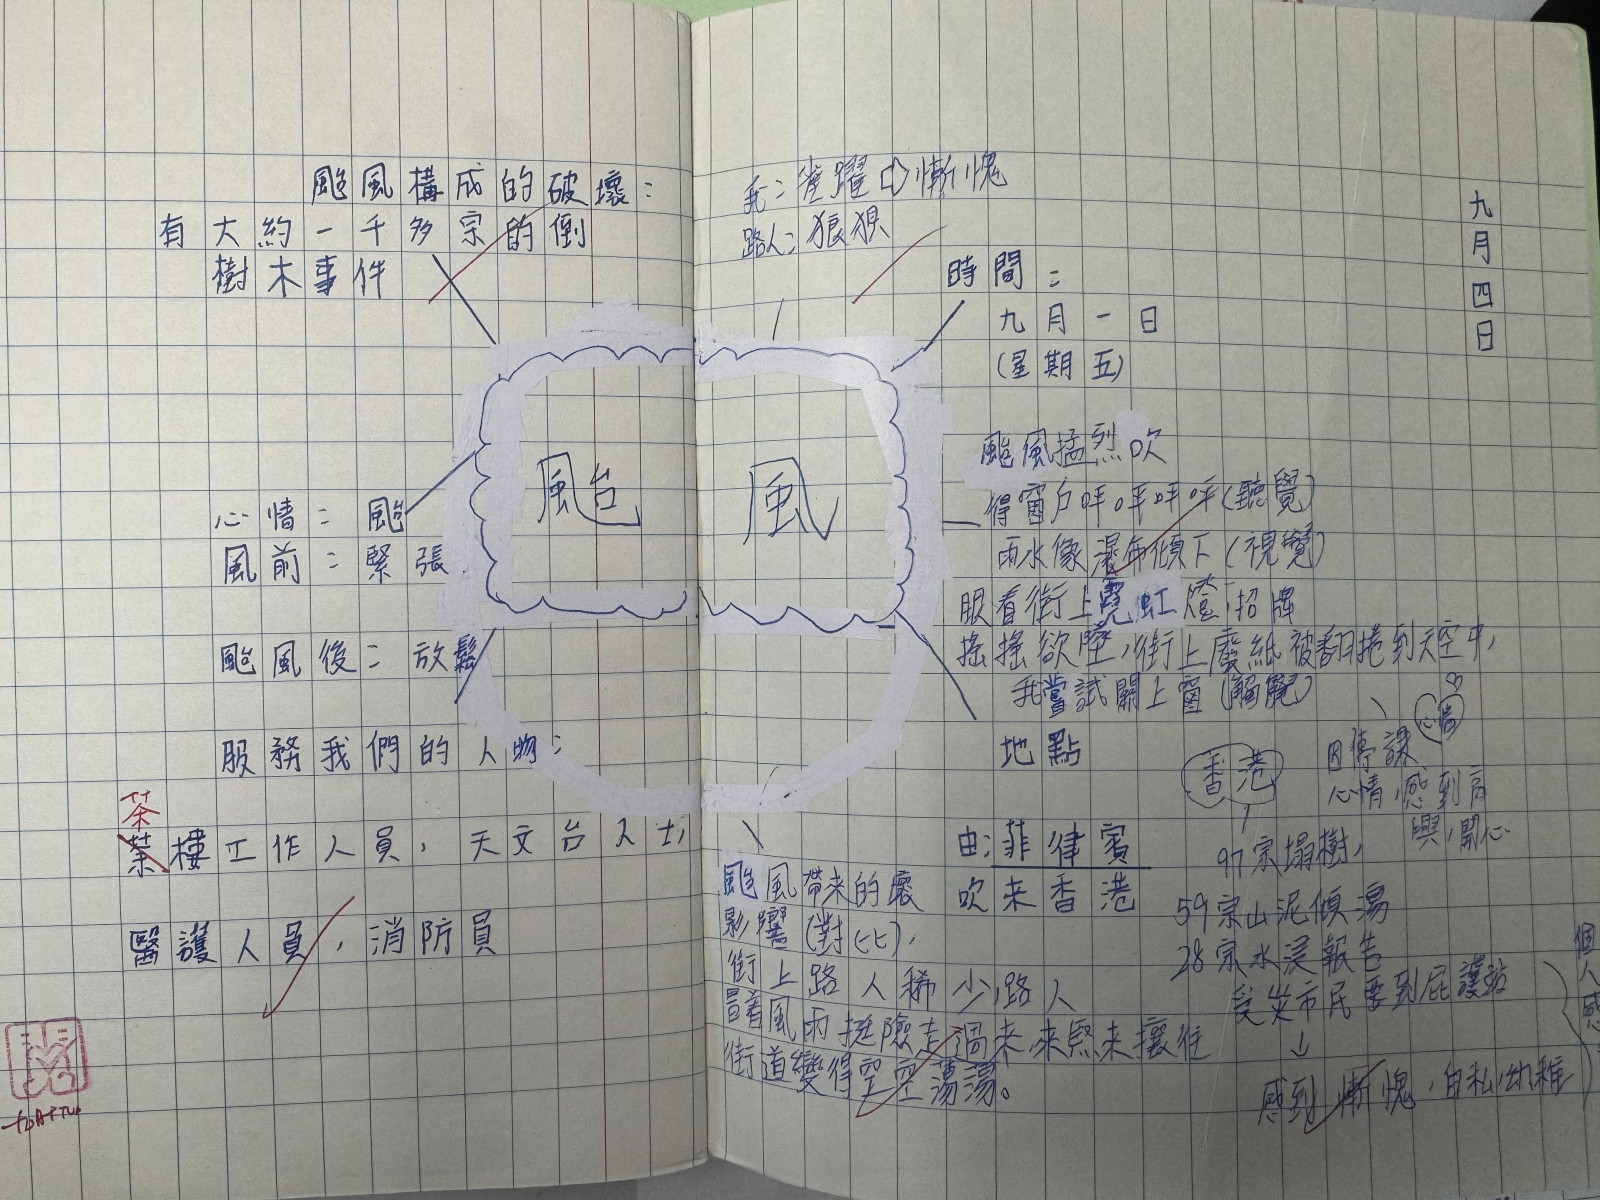 九月四日
颱風構成的破壞：
有大約一千多宗的倒
樹木事件
我：雀躍⇨慚愧
路人：狼狽
時間：
九月一日
(星期五)
颱風
心情：颱
風前：緊張
颱風後：放鬆
服務我們的人物：
茶
樓工作人員，天文台人士，
醫護人員，消防員
颱風猛烈吹
得窗戶呯呯呯呯(聽覺)
雨水像瀑布傾下(視覺)
眼看街上霓虹燈，招牌
搖搖欲墜，街上廢紙被翻捲到天空中，
我嘗試關上窗(觸覺)
地點
由：菲律賓
吹來香港
香港
97宗塌樹，
59宗山泥傾瀉
28宗水浸報告
受災市民要到庇護站
↓
感到慚愧，自私，幼稚
個人感
心情
因停課
心情，感到高
興，開心
颱風帶來的壞
影響(對比)，
街上路人稀少，路人
冒着風雨挺險走過來，來熙來攘往
街道變得空空蕩蕩。